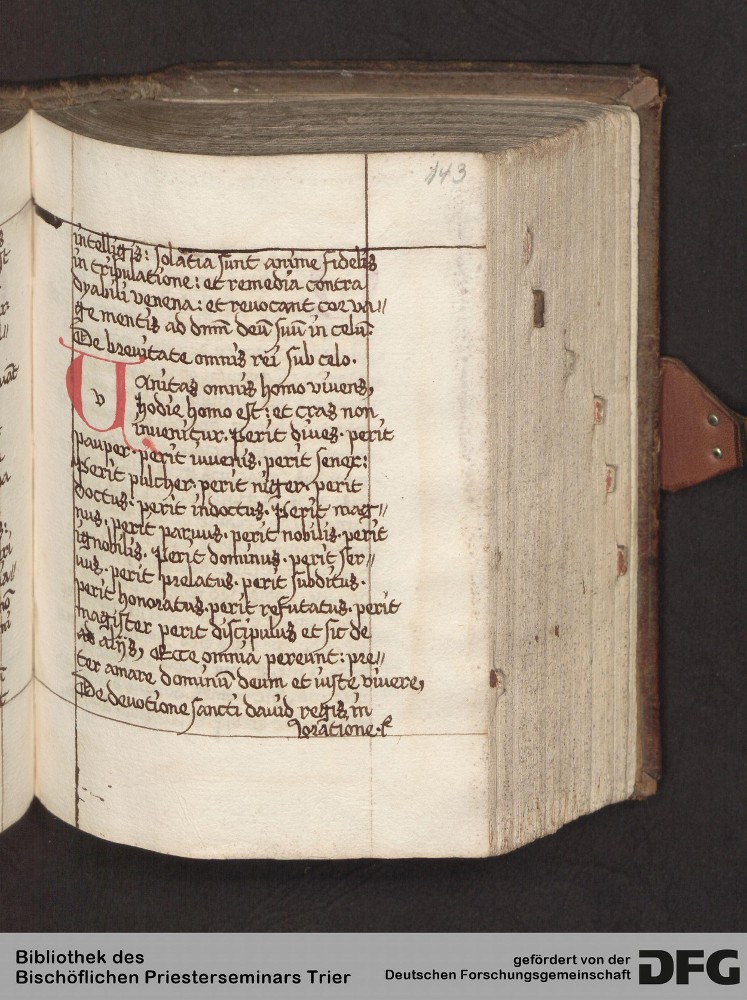 143
intelligis: solatia sunt anime fidelis
in tribulatione: et remedia contra
dyaboli venena: et revocant cor va//
ge mentis ad dnm̄ deū suū in celū:
De brevitate omnis rei sub celo.
Vanitas omnis homo vivens,
hodie homo est: et cras non
invenitur. Perit dives. perit
pauper. perit iuvenis. perit senex:
Perit pulcher. perit niger. perit
doctus. perit indoctus. Perit mag//
nus. perit parvus. perit nobilis. perit
ignobilis. Perit dominus. perit ser//
vus. perit prelatus. perit subditus.
perit honoratus. perit refutatus. perit
magister perit discipulus et sic de
alijs, Ecce omnia pereunt: pre//
ter amare dominū deum et iuste vivere,
De devotione sancti david regis in
oratione.
Bibliothek des
Bischöflichen Priesterseminars Trier
gefördert von der
Deutschen Forschungsgemeinschaft
DFG